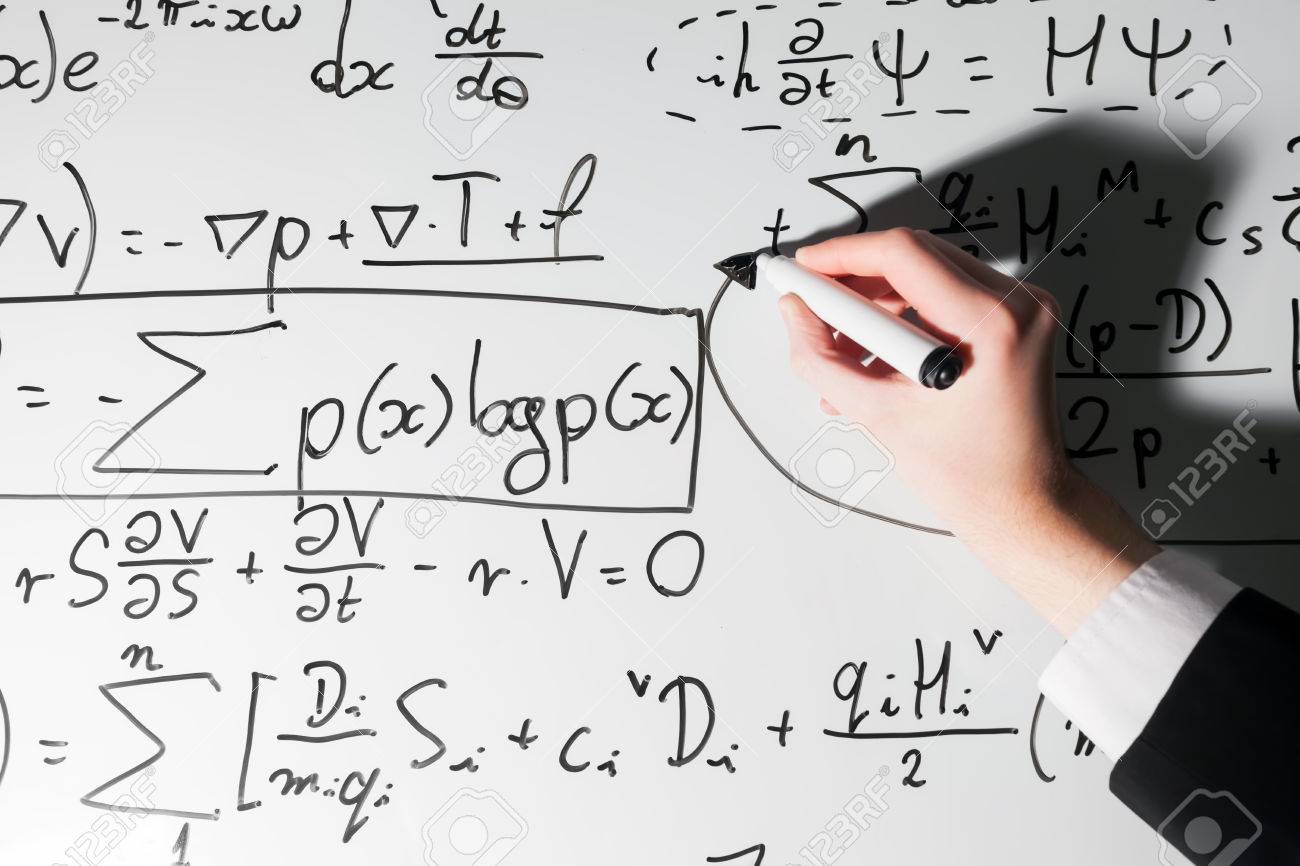 x) e^{-2πixω} dx dt/dθ
iħ ∂/∂t Ψ = HΨ
∇v) = - ∇p + ∇·T + f
+ Σ^n q_i/ H_i^M + c_s
= - Σ p(x) log p(x)
(p-D)
2p +
rS ∂V/∂S + ∂V/∂t - r·V = 0
) = Σ_1^n [ D_i/m_i q_i S_i + c_i^v D_i + q_i H_i^v/2 (